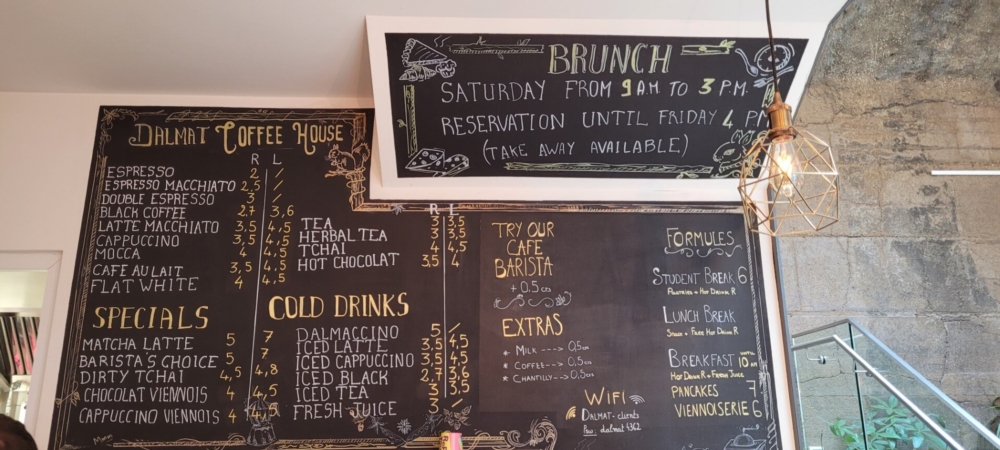 BRUNCH
SATURDAY FROM 9AM TO 3 P.M.
RESERVATION UNTIL FRIDAY 4 P
(TAKE AWAY AVAILABLE)
DALMAT COFFEE HOUSE
R L
ESPRESSO 2 /
ESPRESSO MACCHIATO 2,5 /
DOUBLE ESPRESSO 3 /
BLACK COFFEE 2,7 3,6
LATTE MACCHIATO 3,5 4,5
CAPPUCCINO 3,5 4,5
MOCCA 4
CAFE AU LAIT 3,5 4,5
FLAT WHITE 4 4,5
SPECIALS
MATCHA LATTE 5 7
BARISTA'S CHOICE 5 7
DIRTY TCHAI 4,5 4,8
CHOCOLAT VIENNOIS 4
CAPPUCCINO VIENNOIS 4 4,5
R L
TEA 3 3,5
HERBAL TEA 3 3,5
TCHAI 4 4,5
HOT CHOCOLAT 3,5 4
COLD DRINKS
DALMACCINO 5 /
ICED LATTE 3,5 4,5
ICED CAPPUCCINO 3,5 4,5
ICED BLACK 2,7 3,6
ICED TEA 3,5
FRESH JUICE 3 /
TRY OUR
CAFE
BARISTA
+ 0.5cts
EXTRAS
* MILK ---> 0,5cts
* COFFEE---> 0,5cts
* CHANTILLY---> 0,5cts
WIFI
DALMAT-clients
Pass: dalmat 4362
FORMULES
STUDENT BREAK 6
PASTRIES + HOT DRINK R
LUNCH BREAK
HOT DRINK R
BREAKFAST 10
HOT DRINK R + FRESH JUICE
PANCAKES 7
VIENNOISERIE 6